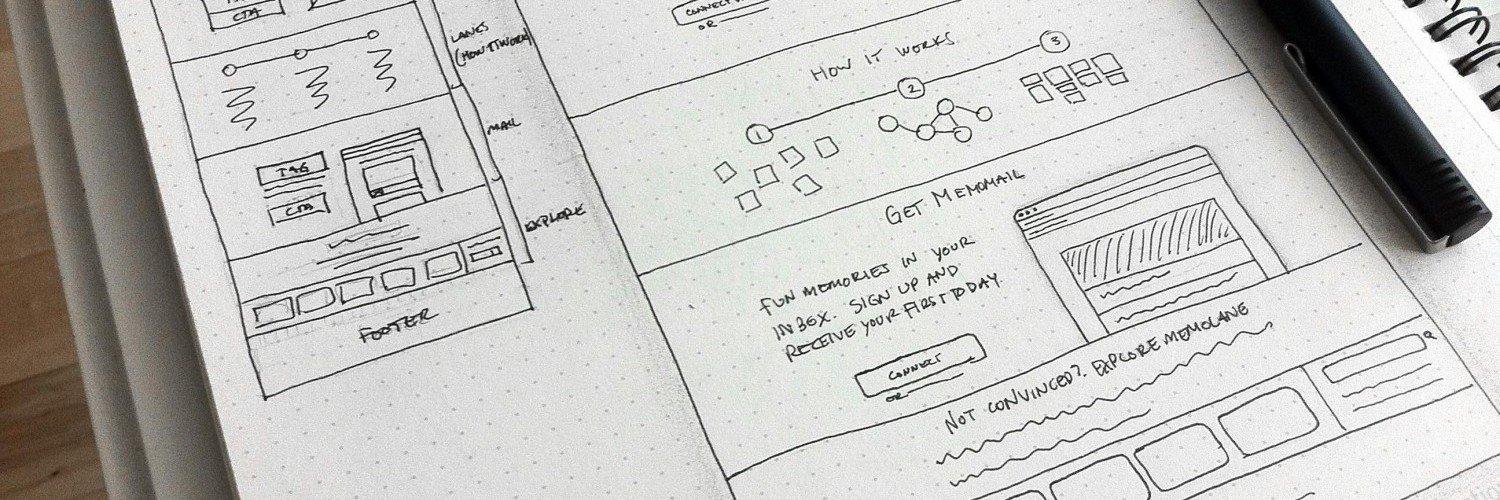 CTA
LANES
(HOW IT WORKS)
MAIL
TAG
CTA
EXPLORE
FOOTER
OR
HOW IT WORKS
1
2
3
GET MEMOMAIL
FUN MEMORIES IN YOUR
INBOX. SIGN UP AND
RECEIVE YOUR FIRST TODAY.
CONNECT
OR
NOT CONVINCED? EXPLORE MEMOLANE